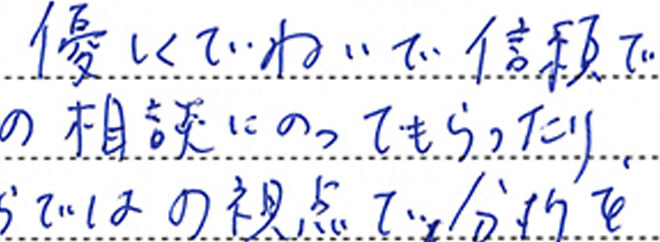 優しくていねいで信頼で
の相談にのってもらったり、
らではの視点で分析を